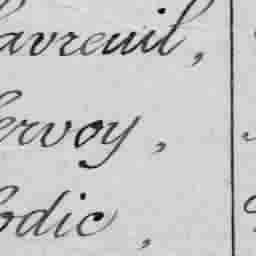 avreuil,
ervoy,
odic,